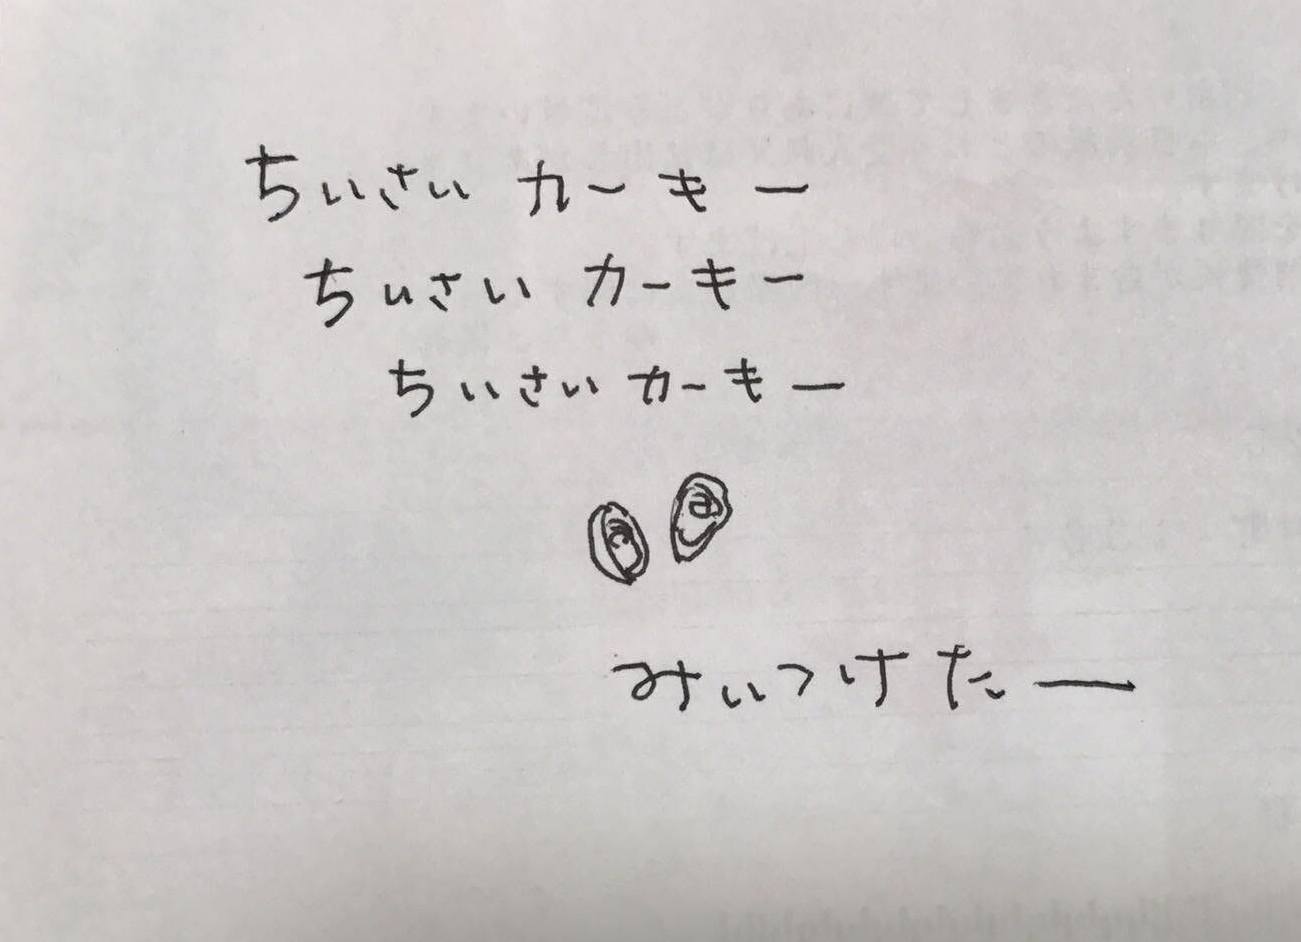 ちいさい カーキー
ちいさい カーキー
ちいさい カーキー
みいつけたー